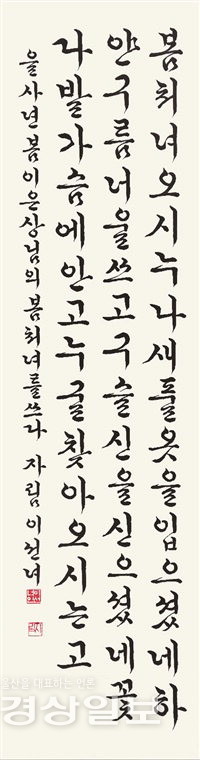 봄처녀오시누나새풀옷을입으셨네하
얀구름너울쓰고구슬신을신으셨네꽃
다발가슴에안고누굴찾아오시는고
을사년봄이은상님의봄처녀를쓰다 자림이선녀
울산을 대표하는 언론
경상일보